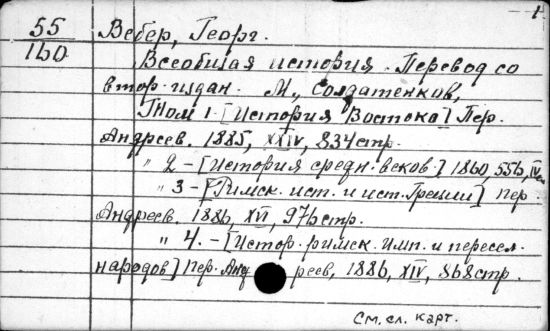 1
55
160
Вебер, Георг.
Всеобщая история. Перевод со
втор. издан. М., Солдатенков,
Том 1. [История Востока] Пер.
Андреев. 1885, XXIV, 834 стр.
" 2 - [История средн. веков.] 1860, 556, IV
" 3 - [Римск. ист. и ист. Греции] Пер.
Андреев. 1886, XVI, 976 стр.
" 4. - [Истор. римск. имп. и пересел.
народов] Пер. Андреев, 1886, XIV, 868 стр.
См. сл. карт.